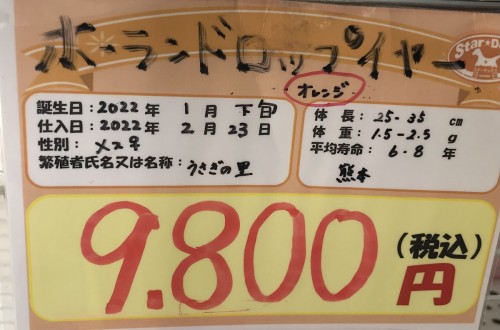 ホーランドロップイヤー
Star★D
オレンジ
誕生日：2022年 1月 下旬
仕入日：2022年 2月 23日
性別： メス♀
繁殖者氏名又は名称：うさぎの里
体 長：25-35 cm
体 重：1.5-2.5 g
平均寿命： 6-8 年
熊本
9.800円
(税込)